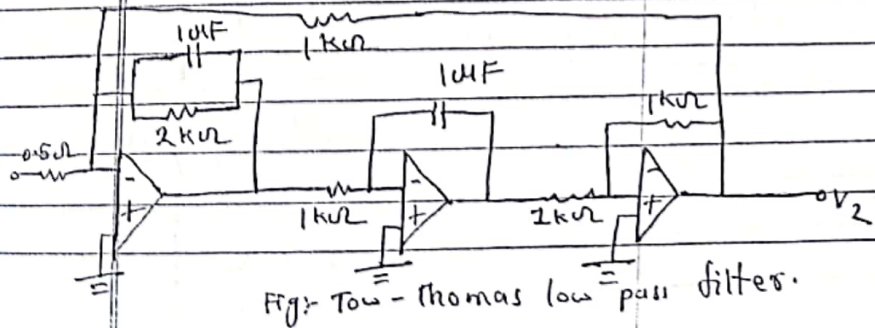 1μF
1KΩ
1μF
1KΩ
2KΩ
0.5Ω
-
+
-
+
-
+
1KΩ
1KΩ
V2
Fig:- Tow-Thomas low pass filter.